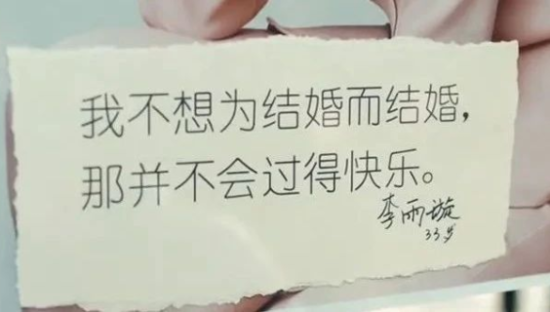 我不想为结婚而结婚，
那并不会过得快乐。
李雨璇
33岁